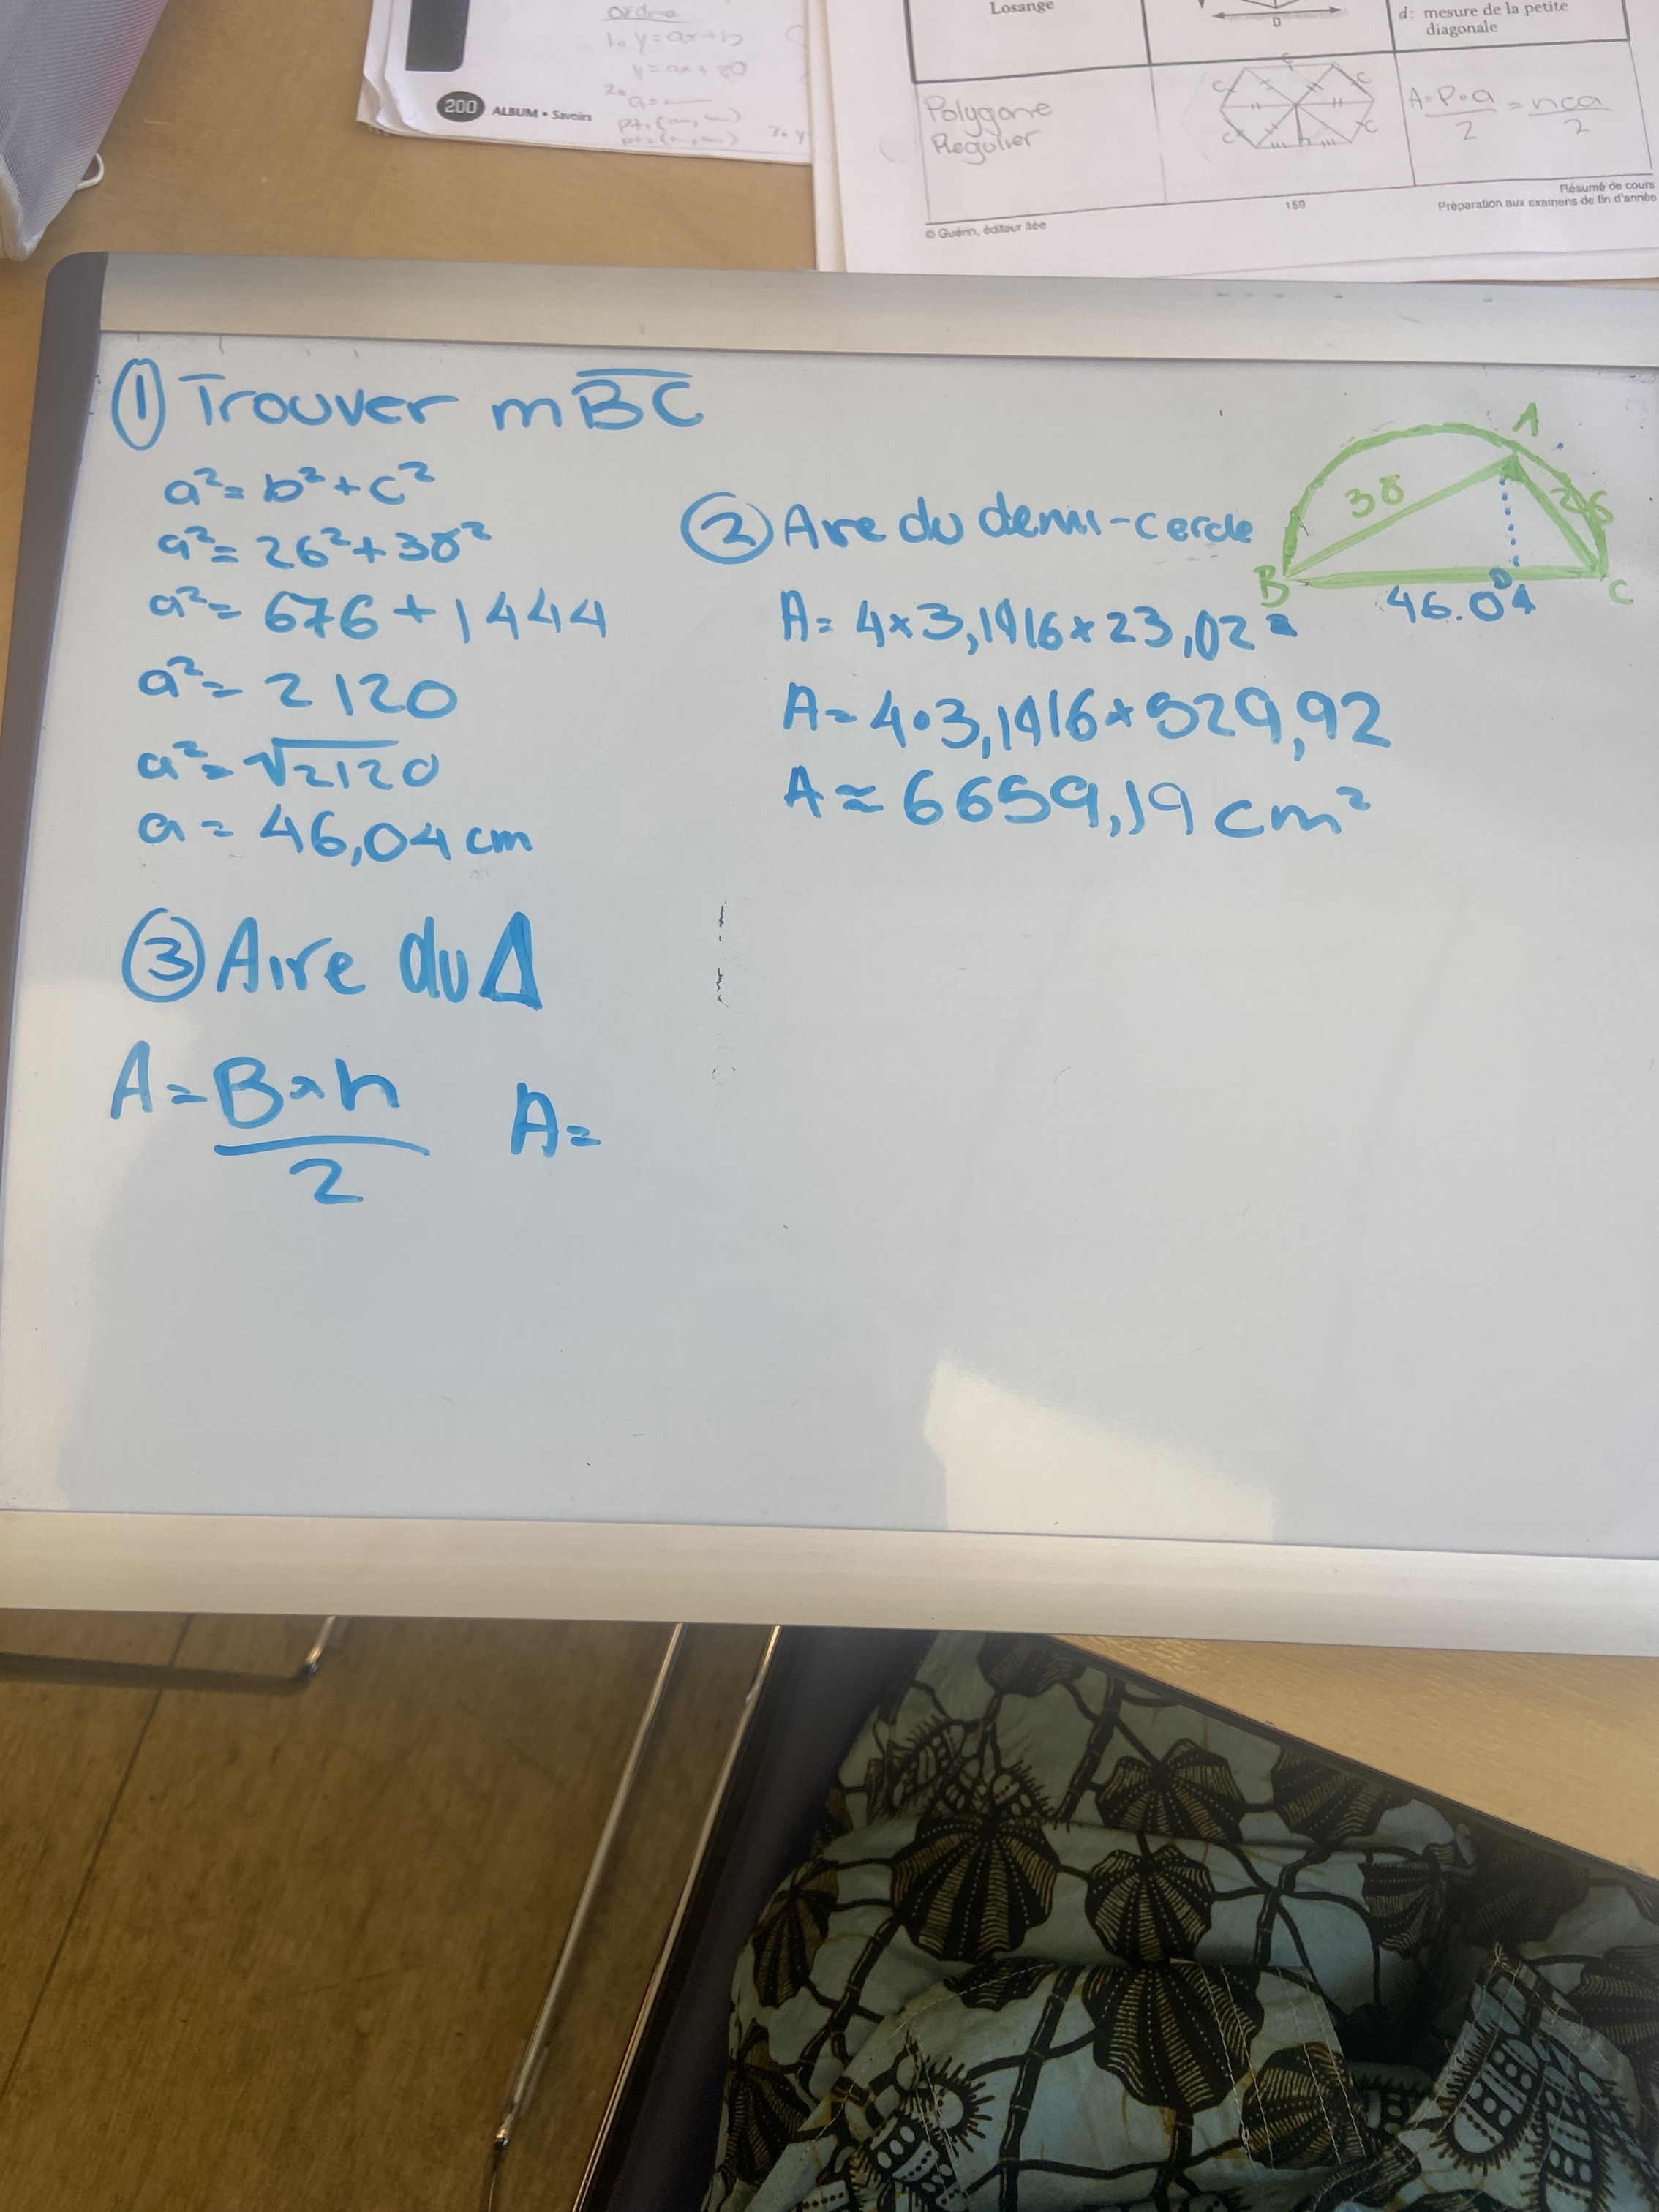 ordre
1. y=ax+b
y=ax+20
2.
a=
pt.(m,m)
3. y
200 ALBUM • Savoirs
Losange
D
d: mesure de la petite
diagonale
Polygone
Regulier
c c c c c
h
A=P•a/2 = nca/2
159
Résumé de cours
Préparation aux examens de fin d'année
© Guérin, éditeur ltée
① Trouver mBC
a²=b²+c²
a²=26²+38²
a²=676+1444
a²=2120
a²=√2120
a=46,04cm
② Aire du demi-cercle
A=4×3,1416×23,02²
A=4•3,1416×529,92
A≈6659,19cm²
A
38
26
B
D
C
46.04
③ Aire du Δ
A=B×h/2 A=